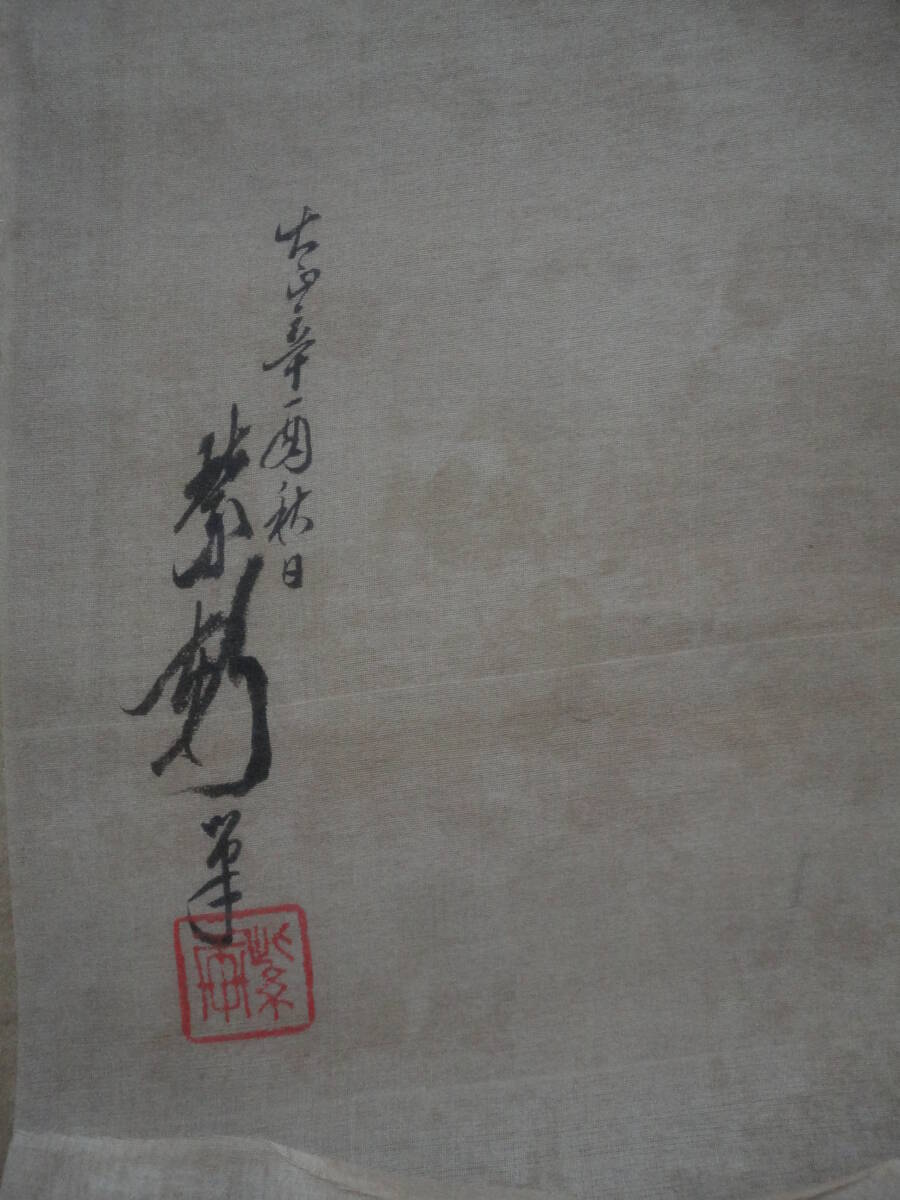 大正辛酉秋日
紫
筆
紫